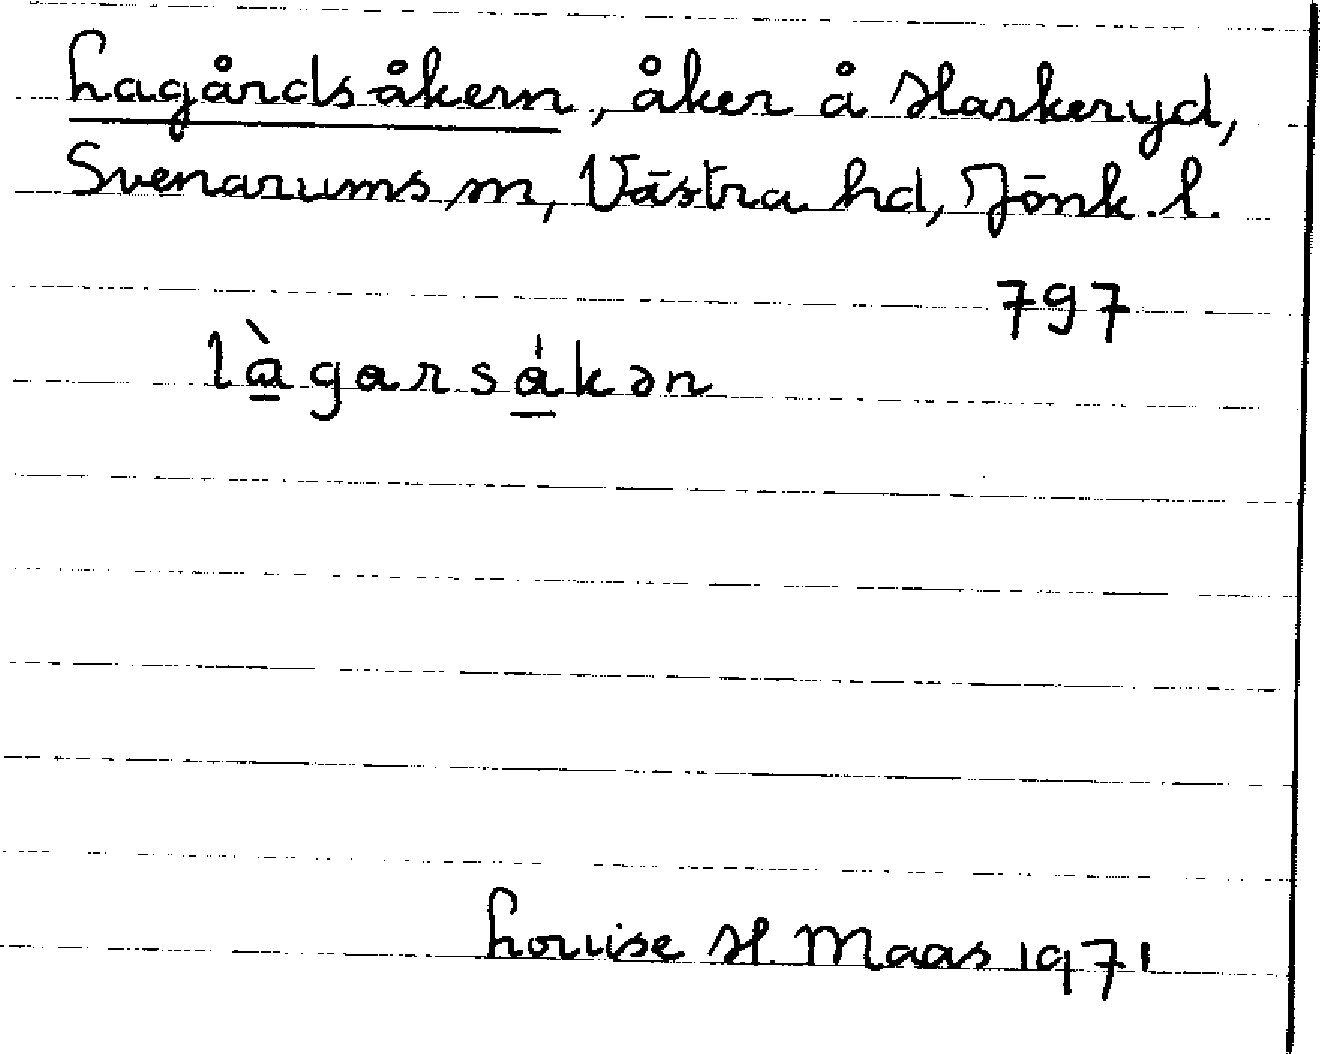 Lagårdsåkern, åker å Harkeryd,
Svenarums sn, Västra hd, Jönk. l.
797
là̱garså̱kən
Louise H. Maas 1971